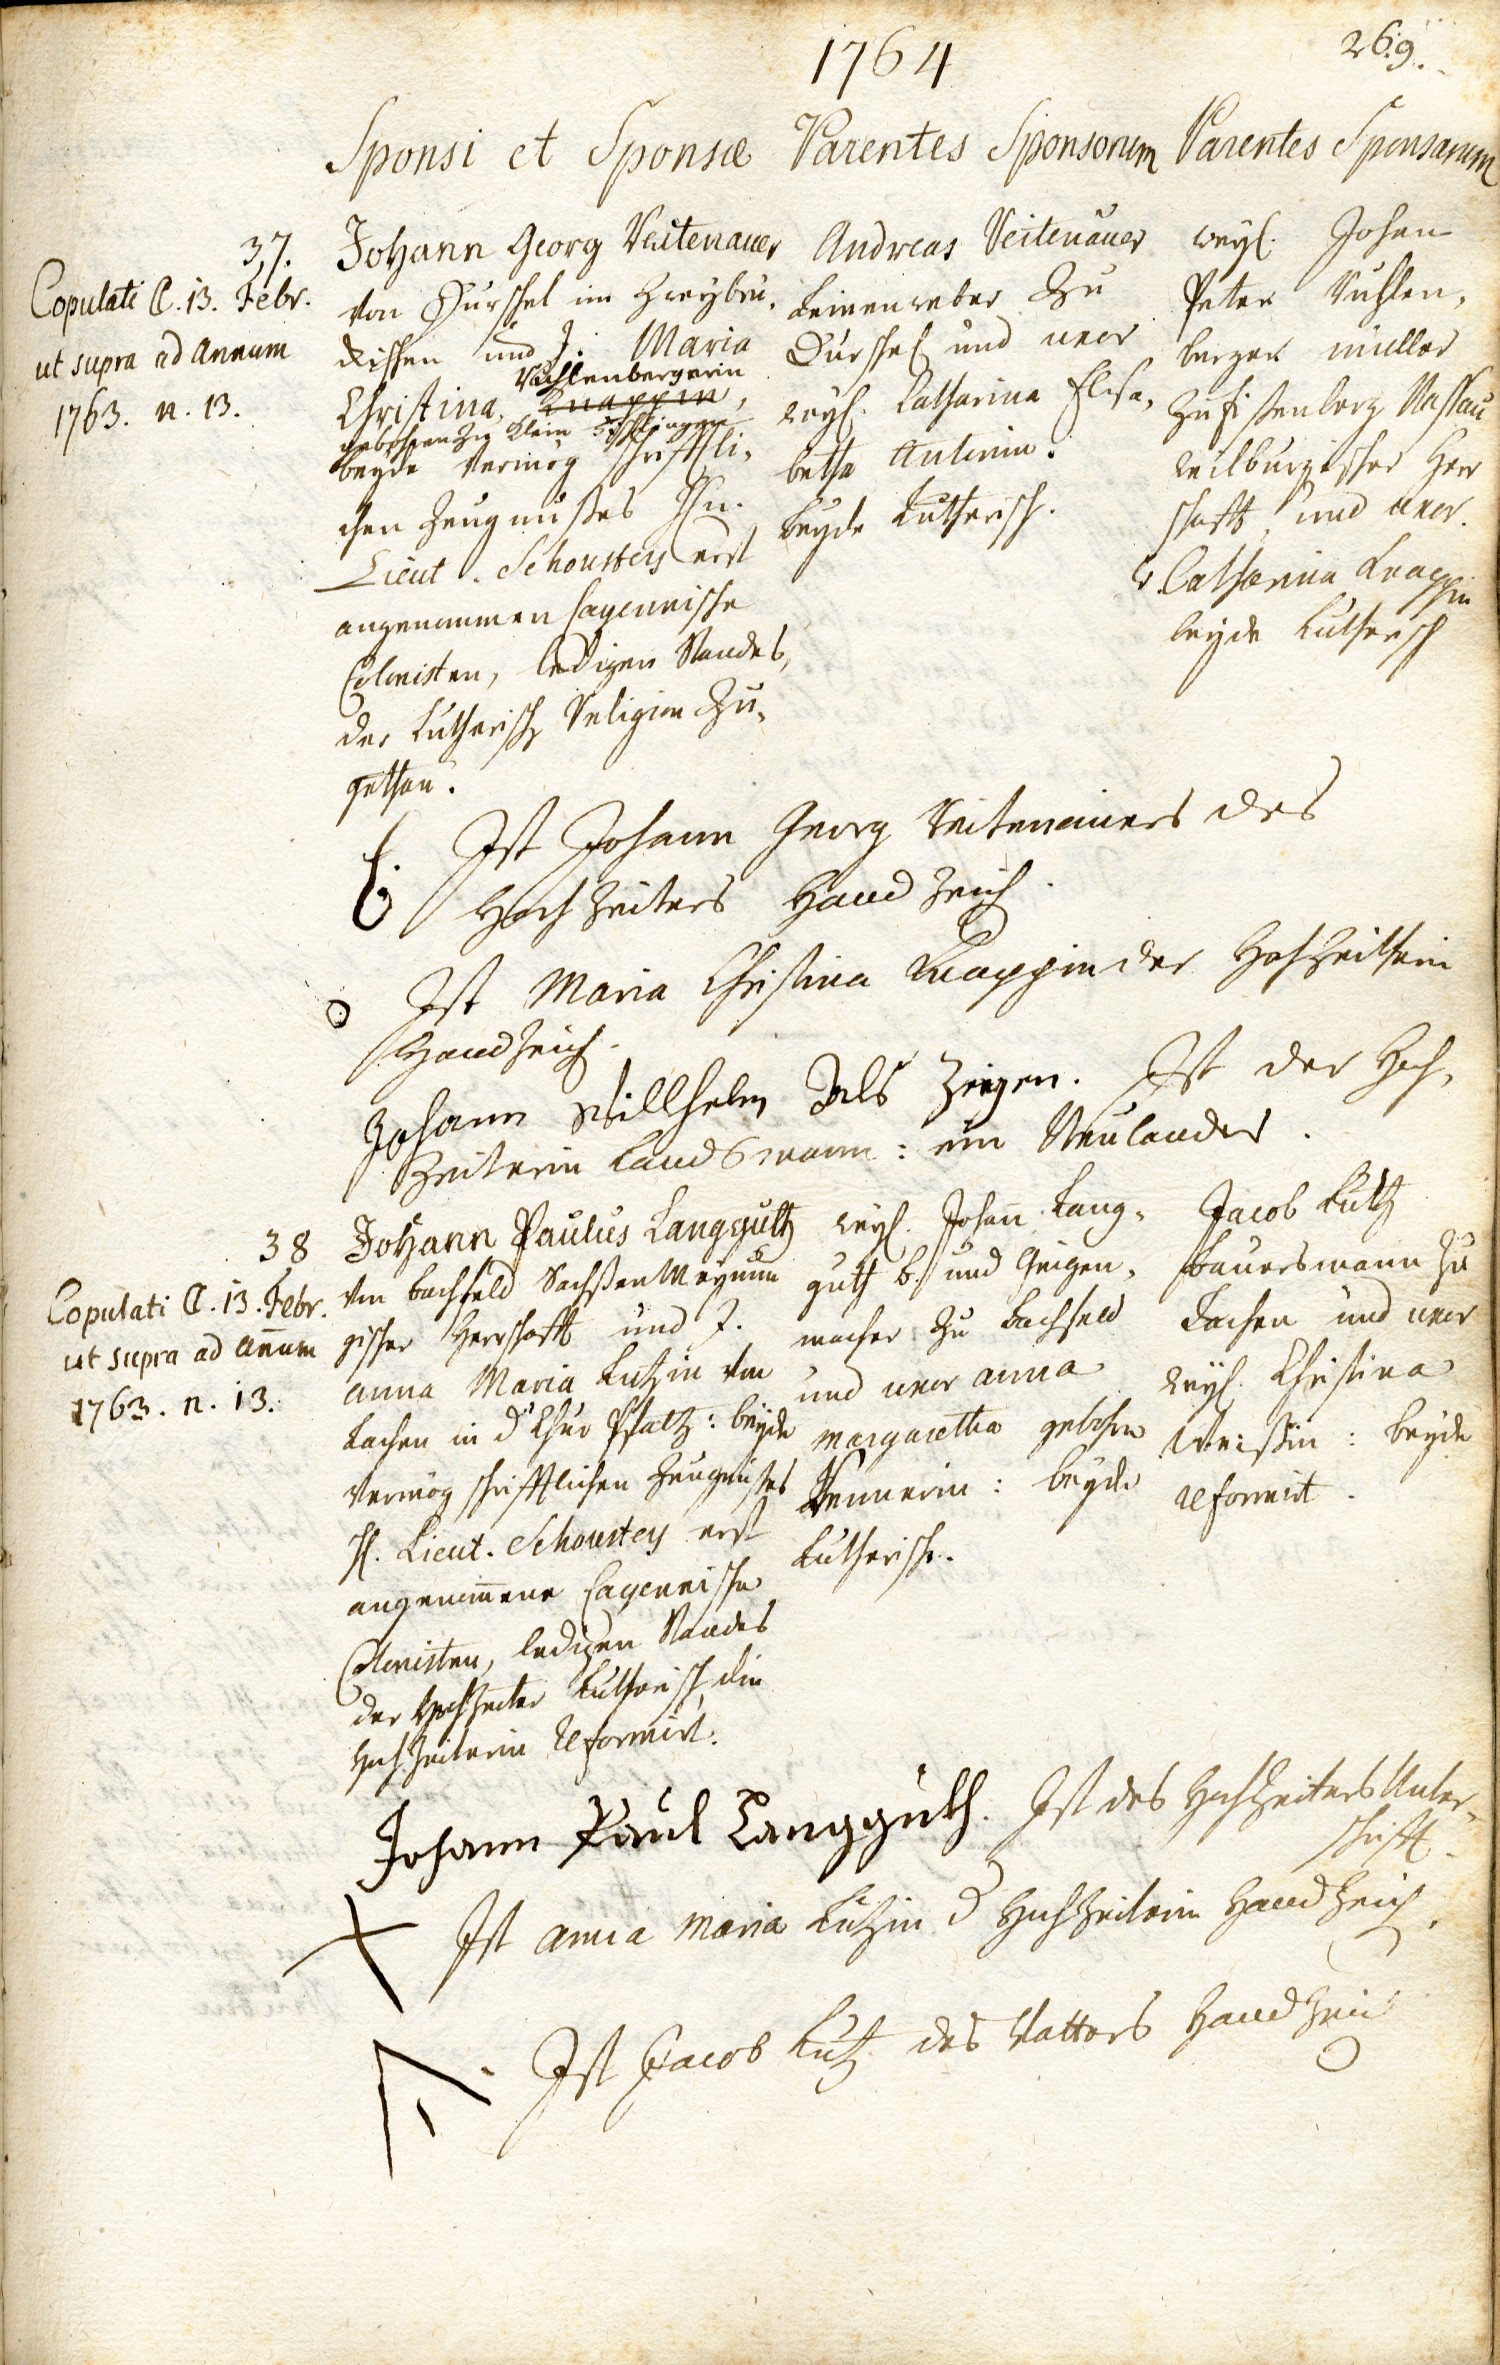 1764
269.
Sponsi et Sponsæ
Parentes Sponsorum
Parentes Sponsarum
37.
Copulati C. 13. Febr.
ut supra ad Annum
1763. n. 13.
Johann Georg Veitenauer
von Durstel im Zweybrü,
ckischen und J. Maria
Vuhlenbergerin
Christina, Knappin,
gebohren zu Klein
beyde Vermög schrifftli,
chen Zeugnußes Hn.
Lieut. Schousters erst
angenommen Cayennische
Colonisten, ledigen Standes,
der Lutherisch Religion zu,
gethan.
Andreas Veitenauer
Leinenweber zu
Durstel und uxor
weyl. Catharina Elisa,
betha
beyde Lutherisch.
weyl. Johan
Peter Vuhlen,
berger müller
zu Nassau
weilburgischer Herr
schafft, und uxor.
Catharina Knappin
beyde Lutherisch
Ist Johann Georg Veitenauers des
Hochzeiters Handzeich.
Ist Maria Christina Knappin der Hochzeiterin
Handzeich.
Johann Willhelm Als Zeigen. Ist der Hoch,
zeiterin Landsmann: ein Neulander.
38
Copulati C. 13. Febr.
ut supra ad Annum
1763. n. 13.
Johann Paulus Langguth
von Bachfeld Sachßen Meynun
gischer Herrschafft und J.
Anna Maria Lutzin von
Lachen in d Chur Pfaltz: beyde
Vermög schrifftlichen Zeugnißes
H. Lieut. Schousters erst
angenom̄ene Cayennische
Colonisten, ledigen Standes
der Hochzeiter Lutherisch, die
Hochzeiterin Reformirt.
weyl. Johan̄ Lang,
guth b. und Geigen,
macher zu Bachfeld
und uxor Anna
Margaretha gebohrne
beyde
Lutherisch.
Jacob Lutz
Bauersmann zu
Lachen und uxor
weyl. Christina
Weißin: beyde
Reformirt.
Johann Paul Langguth. Ist des Hochzeiters Unter,
schrifft.
Ist Anna Maria Lutzin d Hochzeiterin Handzeich.
Ist Jacob Lutz des Vatters Handzeich